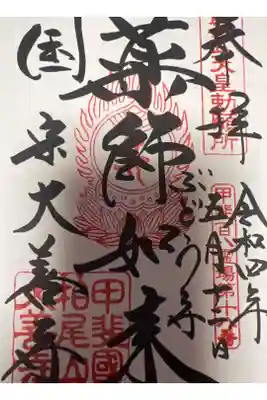 奉拝
令和四年
五月十二日
天皇勅願所
ぶどう寺
薬師如来
国宝大善寺
甲斐國
柏尾山
大善寺